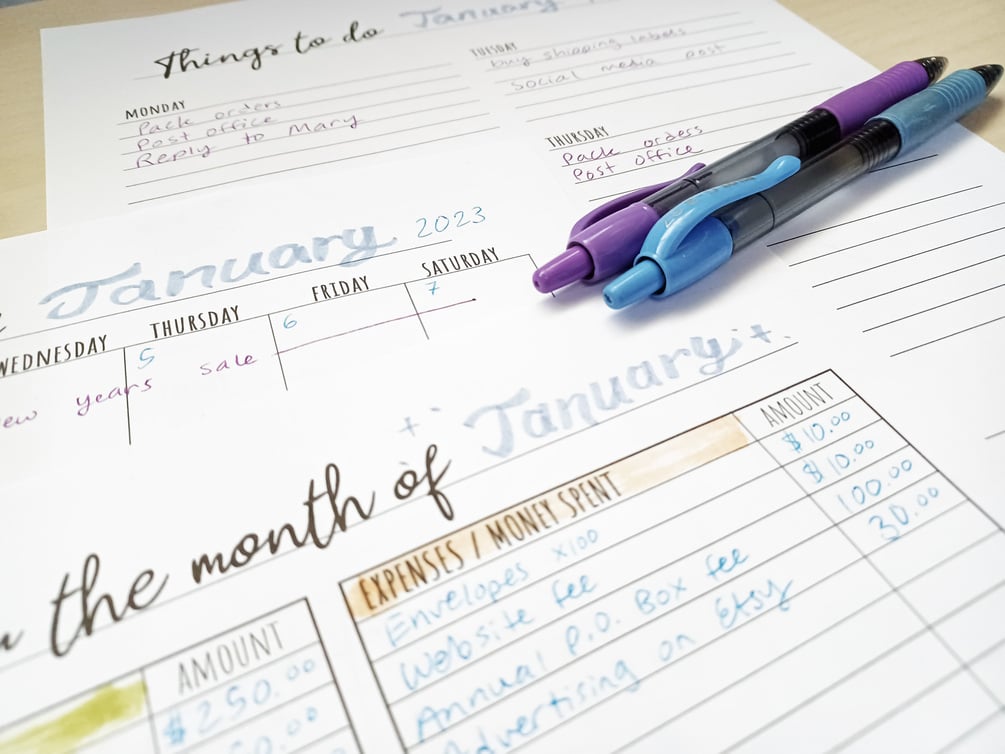 Things to do January
MONDAY
Pack orders
Post office
Reply to Mary
TUESDAY
buy shipping labels
social media post
THURSDAY
Pack orders
Post office
January 2023
WEDNESDAY THURSDAY FRIDAY SATURDAY
5 6 7
years sale
the month of January
EXPENSES / MONEY SPENT AMOUNT
Envelopes x100 $10.00
Website fee $10.00
Annual P.O. Box fee 100.00
Advertising on Etsy 30.00
AMOUNT
$250.00